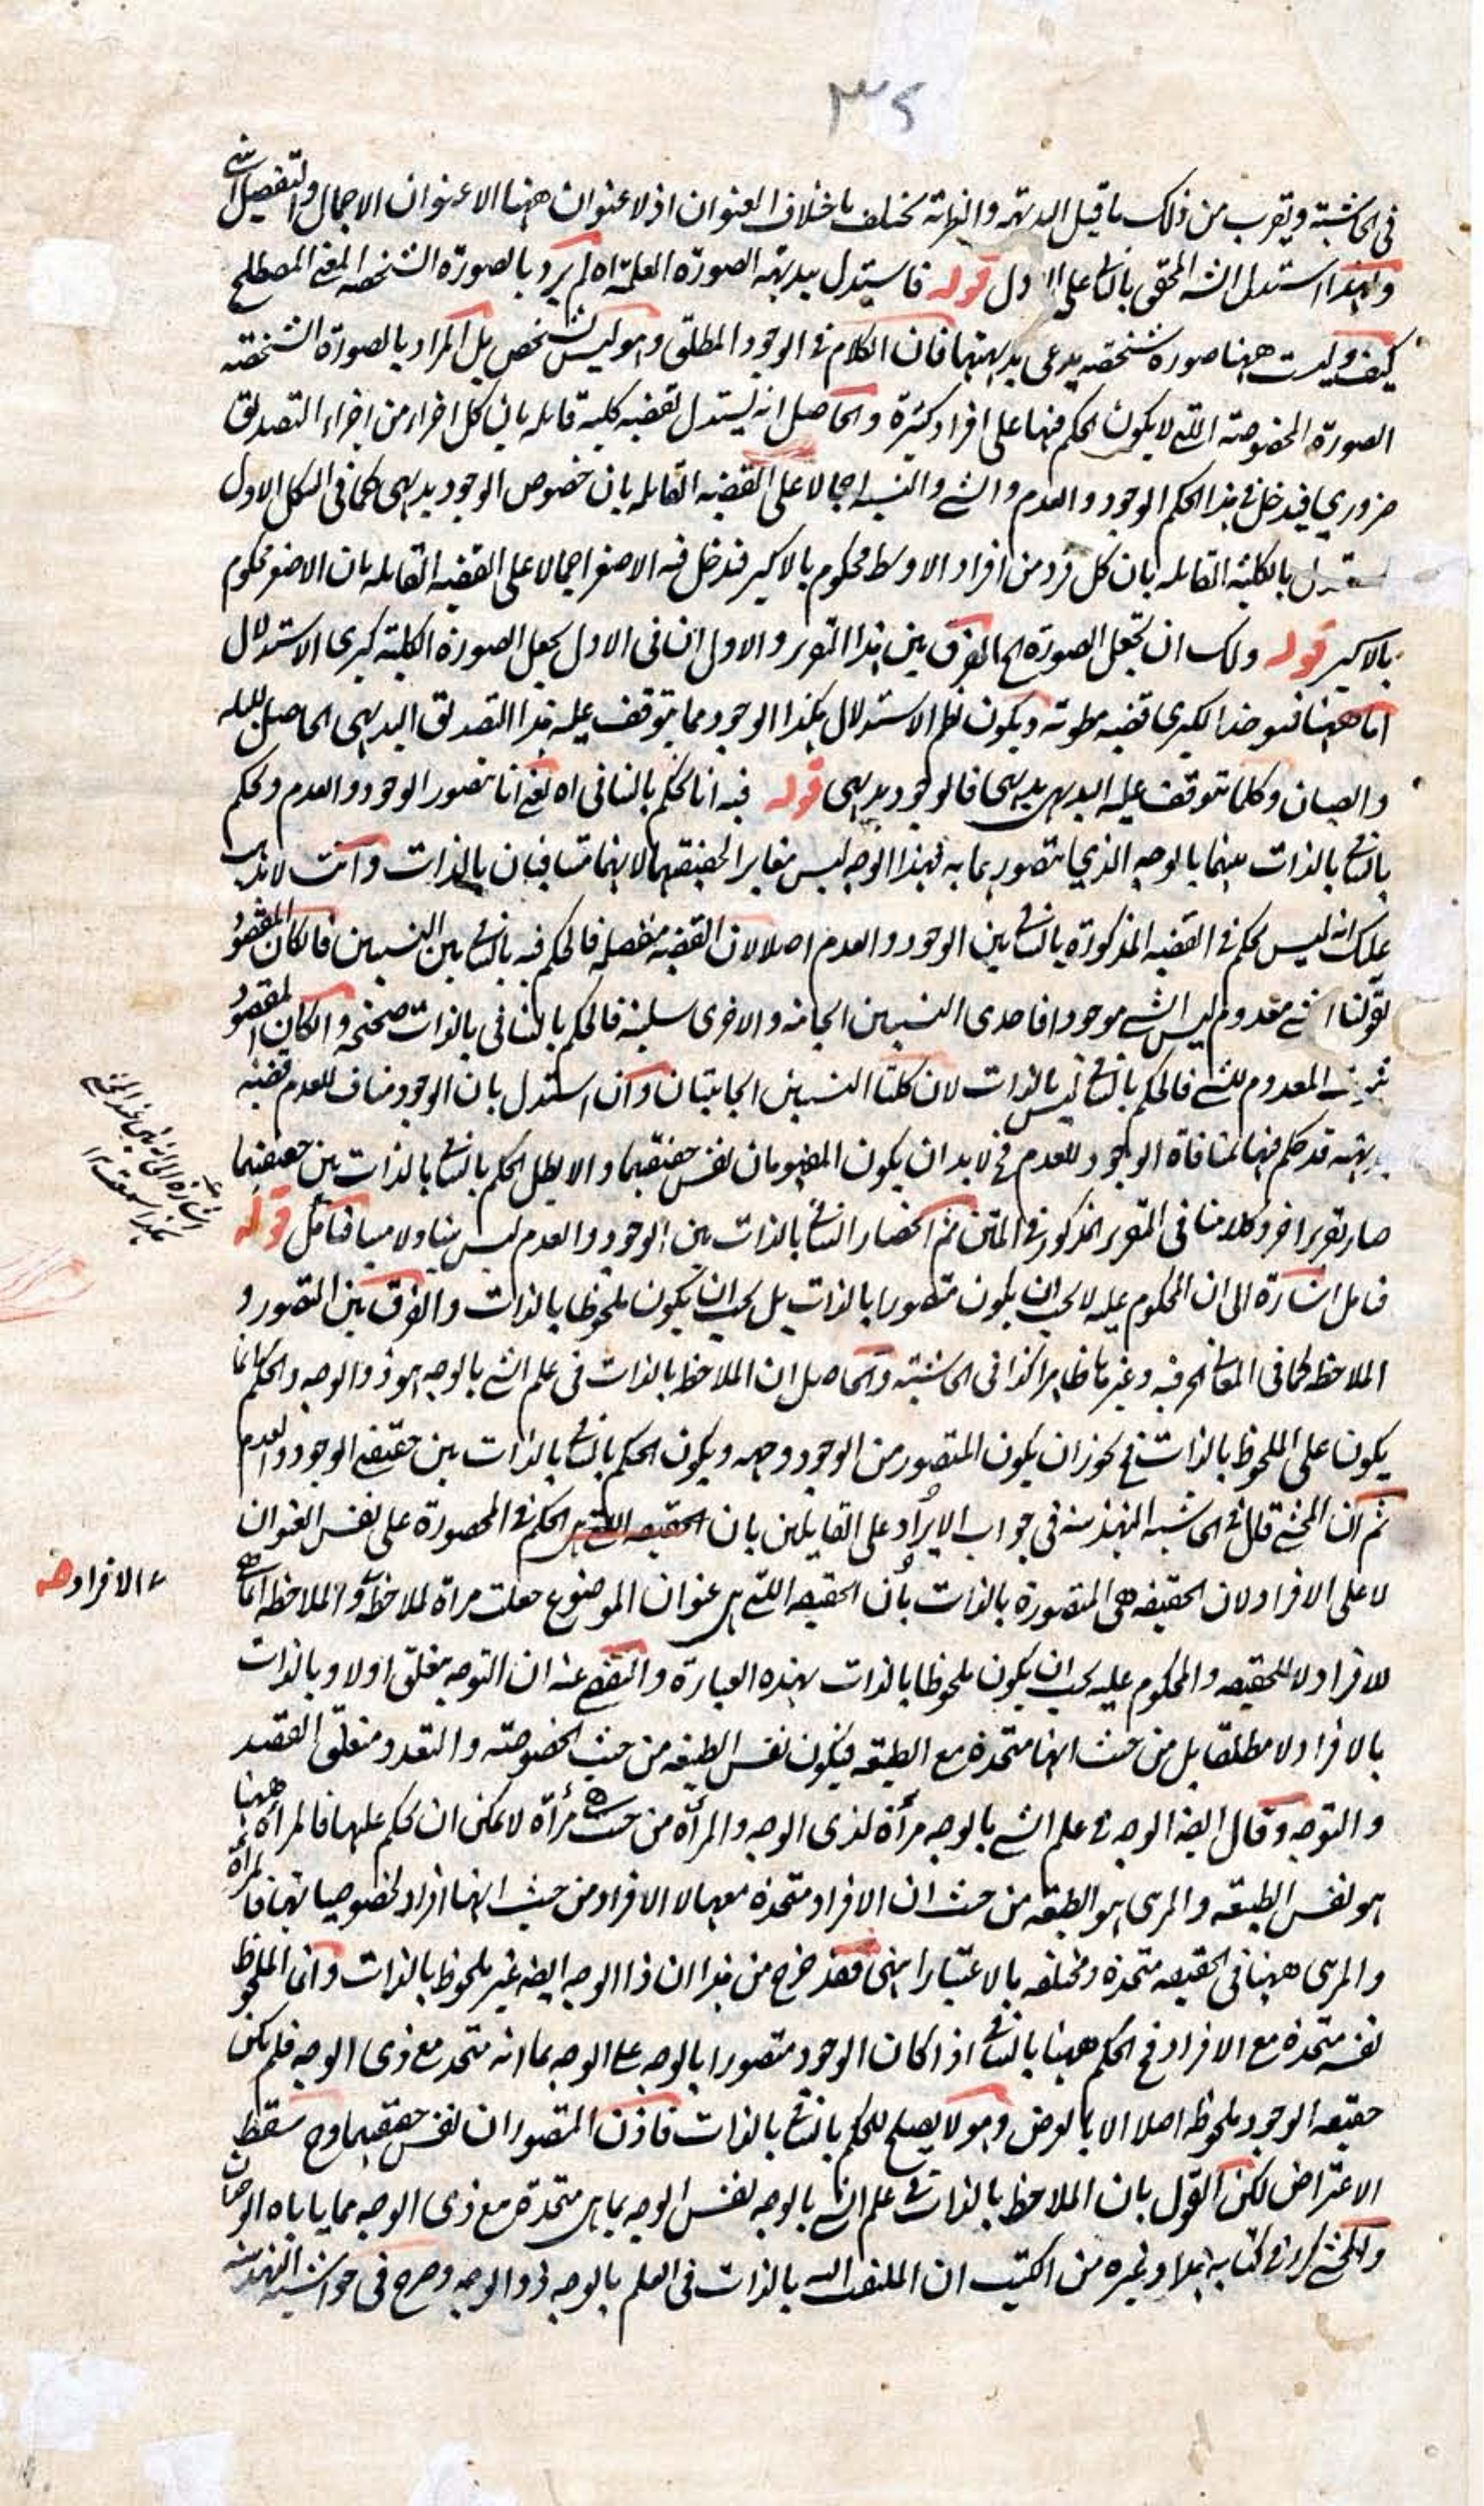 ٣٤
في الحاشية ويقرب من ذلك ما قيل البديهة والنظرية تختلف باختلاف العنوان اذ لا عنوان ههنا الا عنوان الاجمال والتفصيل انتهى
ولهذا استدل الشه المحقق بالتنافي على الاول قوله فاستدل ببديهة الصورة العلمية اه لم يرد بالصورة الشخصية المعنى المصطلح
كيف وليست ههنا صورة شخصية يدعى بديهتها فان الكلام في الوجود المطلق وهو ليس بشخص بل المراد بالصورة الشخصية
الصورة المخصوصة التي لا يكون الحكم فيها على افراد كثيرة والحاصل انه يستدل بقضية كلية قايلة بان كل اجزاء من اجزاء التصديق
ضروري فيدخل في هذا الحكم الوجود والعدم والشي والنسبة اجمالا على القضية القايلة بان خصوص الوجود بديهي كما في الشكل الاول
يستدل بالكلية القايلة بان كل فرد من افراد الاوسط محكوم بالاكبر فيدخل فيه الاصغر اجمالا على القضية القايلة بان الاصغر محكوم
بالاكبر قوله ولك ان تجعل الصورة الخ الفرق بين هذا التقرير والاول ان في الاول يجعل الصورة الكلية كبرى الاستدلال
اما ههنا فموضوعة الكبرى قضية مطوية ويكون نظم الاستدلال هكذا الوجود مما يتوقف عليه هذا التصديق البديهي الحاصل للبله
والصبيان وكلما يتوقف عليه البديهي بديهي فالوجود بديهي قوله فيه انا نحكم بالتنافي اه يعني انا نتصور الوجود والعدم ونحكم
بالتنافي بالذات بينهما بالوجه الذي نتصورهما به فهذا الوجه ليس مغاير الحقيقتهما لانهما متنافيان بالذات وانت لا يذهب
عليك انه ليس الحكم في القضية المذكورة بالتنافي بين الوجود والعدم اصلا لان القضية منفصلة فالحكم فيه بالتنافي بين النسبتين فان كان المقصود
بقولنا الشي معدوم ليس الشي موجودا فاحدى النسبتين ايجابية والاخرى سلبية فالحكم بالتنافي بالذات صحيح وان كان المقصود
ثبوت المعدوم للشي فالحكم بالتنافي ليس بالذات لان كلتا النسبتين ايجابيتان وان استدل بان الوجود مناف للعدم قضية
بديهية قد حكم فيها بمنافاة الوجود للعدم فح لا بد ان يكون المفهومان نفس حقيقتهما والا بطل الحكم بالتنافي بالذات بين حقيقتهما
صار تقريرا اخر وكلامنا في التقرير المذكور في المتن ثم انحصار التنافي بالذات بين الوجود والعدم ليس بينا ولا مبينا فتامل قوله
فتامل اشارة الى ان المحكوم عليه لا يجب ان يكون متصورا بالذات بل يجب ان يكون ملحوظا بالذات والفرق بين التصور و
الملاحظة كما في المعاني الحرفية وغيرها ظاهر كذا في الحاشية والحاصل ان الملاحظ بالذات في علم الشي بالوجه هو ذو الوجه والحكم انما
يكون على الملحوظ بالذات فح يجوز ان يكون المتصور من الوجود وجهه ويكون الحكم بالتنافي بالذات بين حقيقتي الوجود والعدم
ثم ان المحشي قال في الحاشية المنهية منه في جواب الايراد على القايلين بان الحقيقة التي هي الحكم في المحصورة على نفس العنوان
لا على الافراد لان الحقيقة هي المتصورة بالذات بان الحقيقة التي هي عنوان الموضوع جعلت مرآة لملاحظة والملاحظة انما هي
٧ الافراد صه
للافراد لا للحقيقة والمحكوم عليه يجب ان يكون ملحوظا بالذات بهذه العبارة والتفصي عنه ان التوجه متعلق اولا وبالذات
بالافراد لا مطلقا بل من حيث انها متحدة مع الطبيعة فيكون نفس الطبيعة من حيث الخصوصية والتعدد متعلق القصد
والتوجه وقال ايضا الوجه في علم الشي بالوجه مرآة لذي الوجه والمرآة من حيث هي مرآة لا يمكن ان يحكم عليها فالمرآة ههنا
هو نفس الطبيعة والمرئي هو الطبيعة من حيث ان الافراد متحدة معها لا الافراد من حيث انها افراد لخصوصياتها فالمرآة
والمرئي ههنا في الحقيقة متحدة ومختلفة بالاعتبار انتهى فقد خرج من هذا ان ذا الوجه ايضا غير ملحوظ بالذات وانما الملحوظ
نفسه متحدة مع الافراد فح الحكم ههنا بالتنافي اذا كان الوجود متصورا بالوجه على الوجه بما انه متحد مع ذي الوجه فلم يكن
حقيقة الوجود ملحوظا اصلا الا بالعرض وهو لا يصلح للحكم بالتنافي بالذات فاذن المتصوران نفس حقيقتهما وح سقط
الاعتراض لكن القول بان الملاحظ بالذات في علم الشي بالوجه نفس الوجه بما هي متحدة مع ذي الوجه مما ياباه الوجدان
والمحشي كرر في كتابه هذا وغيره من الكتب ان الملتفت اليه بالذات في العلم بالوجه ذو الوجه وصرح في حواشيه المنهية